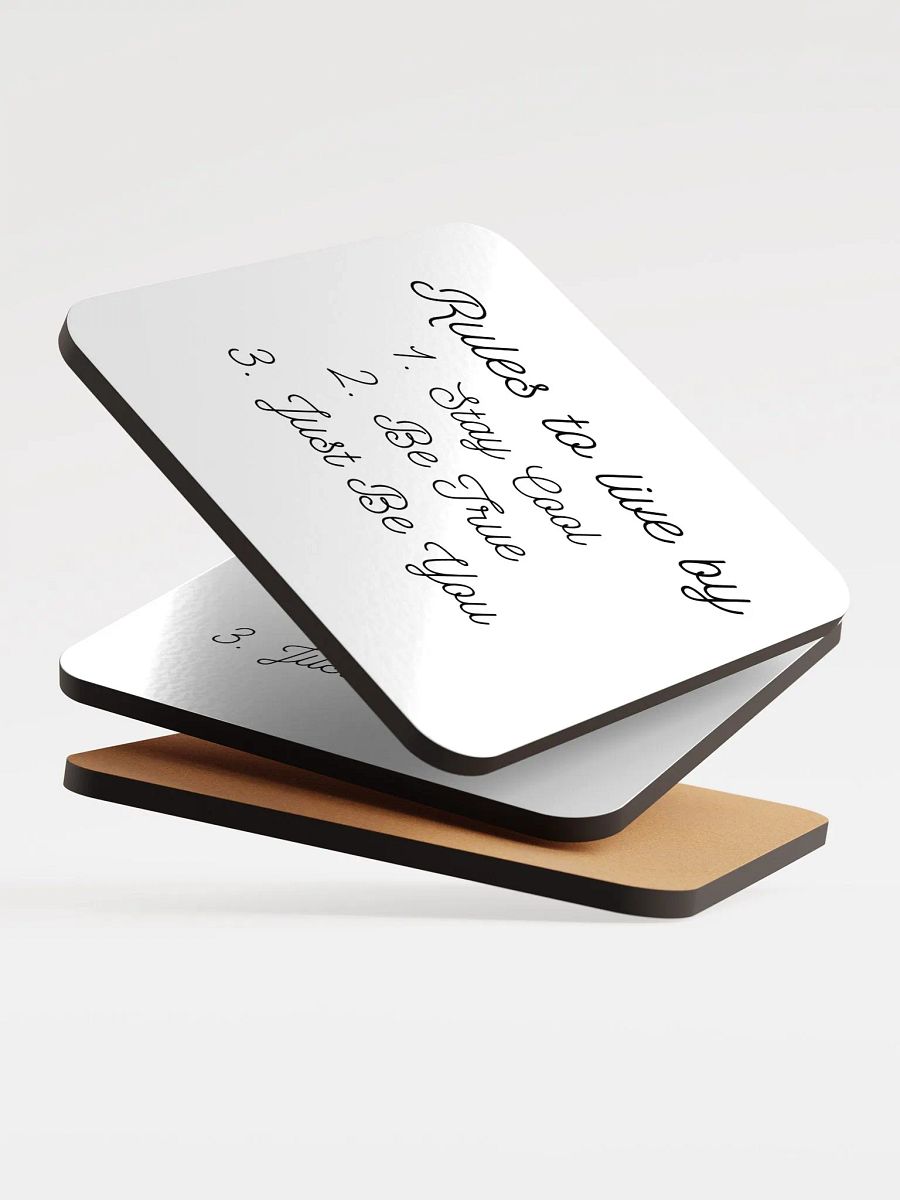 Rules to live by
1. Stay Cool
2. Be True
3. Just Be You
3. Jus